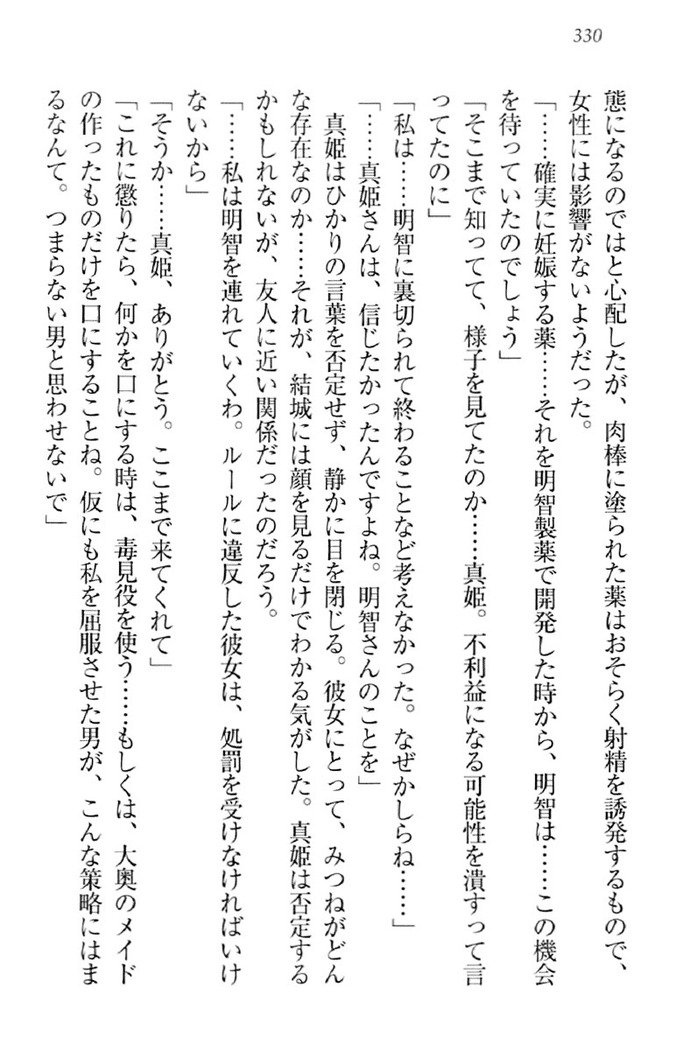 330
態になるのではと心配したが、肉棒に塗られた薬はおそらく射精を誘発するもので、
女性には影響がないようだった。
「……確実に妊娠する薬……それを明智製薬で開発した時から、明智は……この機会
を待っていたのでしょう」
「そこまで知ってて、様子を見てたのか……真姫。不利益になる可能性を潰すって言
ってたのに」
「私は……明智に裏切られて終わることなど考えなかった。なぜかしらね……」
「……真姫さんは、信じたかったんですよね。明智さんのことを」
　真姫はひかりの言葉を否定せず、静かに目を閉じる。彼女にとって、みつねがどん
な存在なのか……それが、結城には顔を見るだけでわかる気がした。真姫は否定する
かもしれないが、友人に近い関係だったのだろう。
「……私は明智を連れていくわ。ルールに違反した彼女は、処罰を受けなければいけ
ないから」
「そうか……真姫、ありがとう。ここまで来てくれて」
「これに懲りたら、何かを口にする時は、毒見役を使う……もしくは、大奥のメイド
の作ったものだけを口にすることね。仮にも私を屈服させた男が、こんな策略にはま
るなんて。つまらない男と思わせないで」